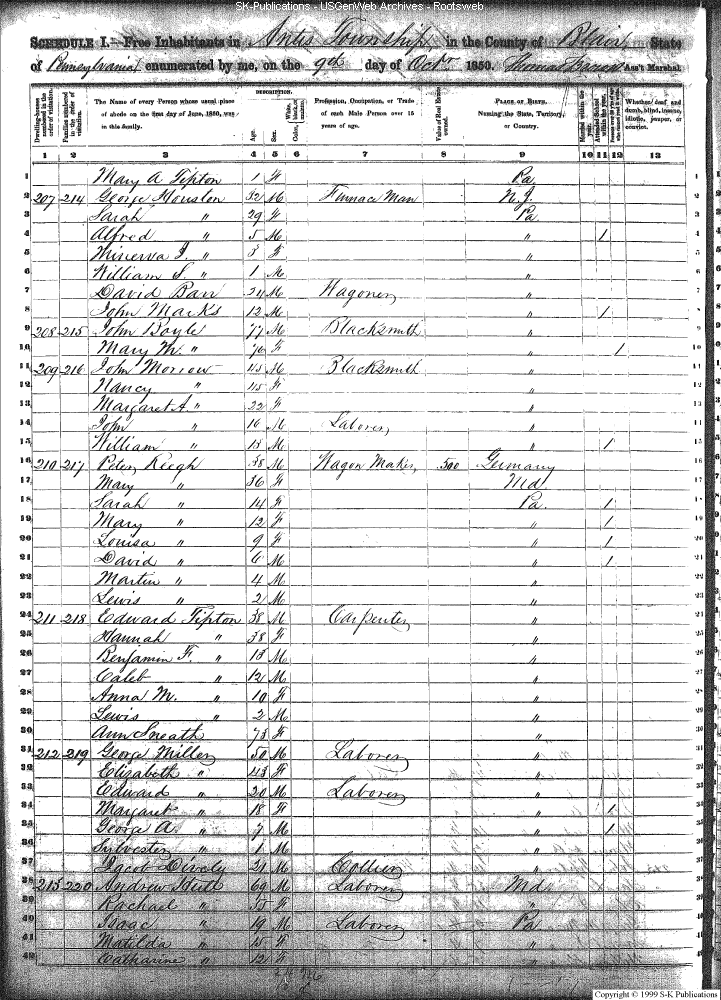 SK-Publications - USGenWeb Archives - Rootsweb
SCHEDULE I.—Free Inhabitants in Antis Township in the County of Blair State
of Pennsylvania enumerated by me, on the 9th day of Octr 1850. Thomas Ass't Marshal.
DESCRIPTION.
Dwelling-houses numbered in the order of visitation.
Families numbered in the order of visitation.
The Name of every Person whose usual place of abode on the first day of June, 1850, was in this family.
Age.
Sex.
Color, White, black, or mulatto.
Profession, Occupation, or Trade of each Male Person over 15 years of age.
Value of Real Estate owned.
PLACE OF BIRTH. Naming the State, Territory, or Country.
Married within the year.
Attended School within the year.
Whether deaf and dumb, blind, insane, idiotic, pauper, or convict.
1 2 3 4 5 6 7 8 9 10 11 12 13
1 Mary A Tipton 1 F Pa 1
2 207 214 George Houston 32 M Furnace Man N.J. 2
3 Sarah " 29 F Pa 3
4 Alfred " 5 M " 1 4
5 Minerva J. " 3 F " 5
6 William S. " 1 M " 6
7 David Barr 24 M Wagoner " 7
8 John Marks 12 M " 1 8
9 208 215 John Boyle 77 M Blacksmith " 9
10 Mary M. " 76 F " 1 10
11 209 216 John Morrow 45 M Blacksmith " 11
12 Nancy " 45 F " 12
13 Margaret A " 22 F " 13
14 John " 16 M Laborer " 14
15 William " 13 M " 1 15
16 210 217 Peter Keegh 38 M Wagon Maker 500 Germany 16
17 Mary " 36 F Md 17
18 Sarah " 14 F Pa 1 18
19 Mary " 12 F " 1 19
20 Louisa " 9 F " 1 20
21 David " 6 M " 1 21
22 Martin " 4 M " 22
23 Lewis " 2 M " 23
24 211 218 Edward Tipton 38 M Carpenter " 24
25 Hannah " 38 F " 25
26 Benjamin F. " 13 M " 26
27 Caleb " 12 M " 27
28 Anna M. " 10 F " 28
29 Lewis " 2 M " 29
30 Ann Sneath 73 F " 30
31 212 219 George Miller 50 M Laborer " 31
32 Elizabeth " 43 F " 32
33 Edward " 20 M Laborer " 33
34 Margaret " 18 F " 1 34
35 George A. " 7 M " 1 35
36 Sylvester " 1 M " 36
37 Jacob Lively M Collier " 37
38 213 220 Andrew 69 M Laborer Md 38
39 Rachael " F " 39
40 Isaac " 19 M Laborer Pa 40
41 Matilda " 15 F " 41
42 Catharine " 12 F " 42
Copyright © 1999 S-K Publications